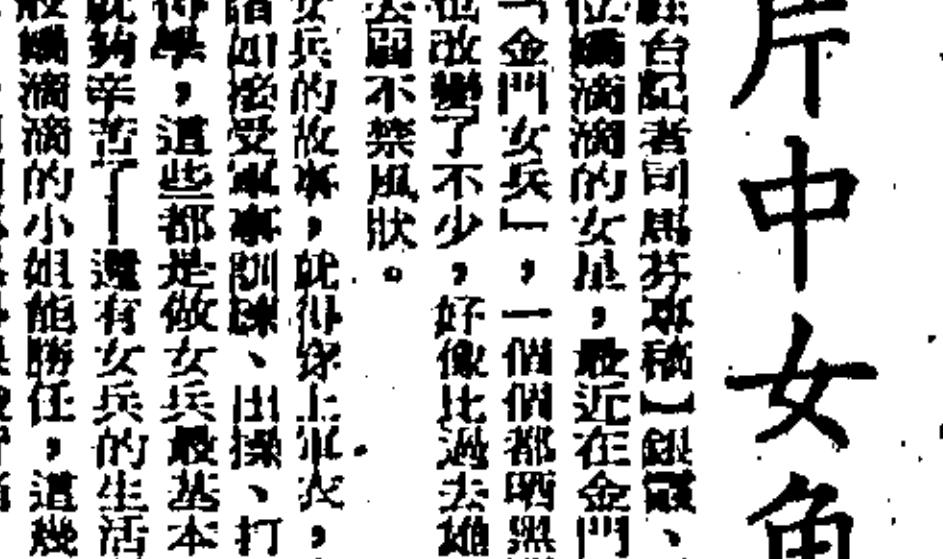 片中女角
駐台記者司馬芬專稿】銀幕、
位嬌滴滴的女星，最近在金門
「金門女兵」，一個個都晒黑
也改變了不少，好像比過去雄
去弱不禁風狀。
女兵的故事，就得穿上軍衣，
諸如接受軍事訓練、出操、打
得學，這些都是做女兵最基本
就夠辛苦了——還有女兵的生活
般嬌滴滴的小姐能勝任，這幾